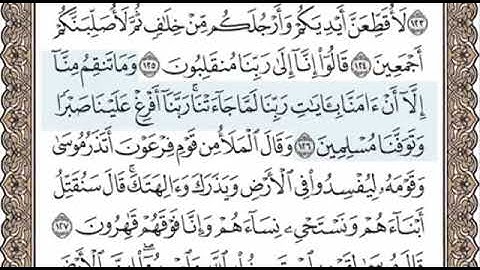 ١٢٣ لَأُقَطِّعَنَّ أَيْدِيَكُمْ وَأَرْجُلَكُم مِّنْ خِلَٰفٍ ثُمَّ لَأُصَلِّبَنَّكُمْ
أَجْمَعِينَ ١٢٤ قَالُوٓا۟ إِنَّآ إِلَىٰ رَبِّنَا مُنقَلِبُونَ ١٢٥ وَمَا تَنقِمُ مِنَّآ
إِلَّآ أَنْ ءَامَنَّا بِـَٔايَٰتِ رَبِّنَا لَمَّا جَآءَتْنَا ۚ رَبَّنَآ أَفْرِغْ عَلَيْنَا صَبْرًا
وَتَوَفَّنَا مُسْلِمِينَ ١٢٦ وَقَالَ ٱلْمَلَأُ مِن قَوْمِ فِرْعَوْنَ أَتَذَرُ مُوسَىٰ
وَقَوْمَهُۥ لِيُفْسِدُوا۟ فِى ٱلْأَرْضِ وَيَذَرَكَ وَءَالِهَتَكَ ۚ قَالَ سَنُقَتِّلُ
أَبْنَآءَهُمْ وَنَسْتَحْىِۦ نِسَآءَهُمْ وَإِنَّا فَوْقَهُمْ قَٰهِرُونَ ١٢٧